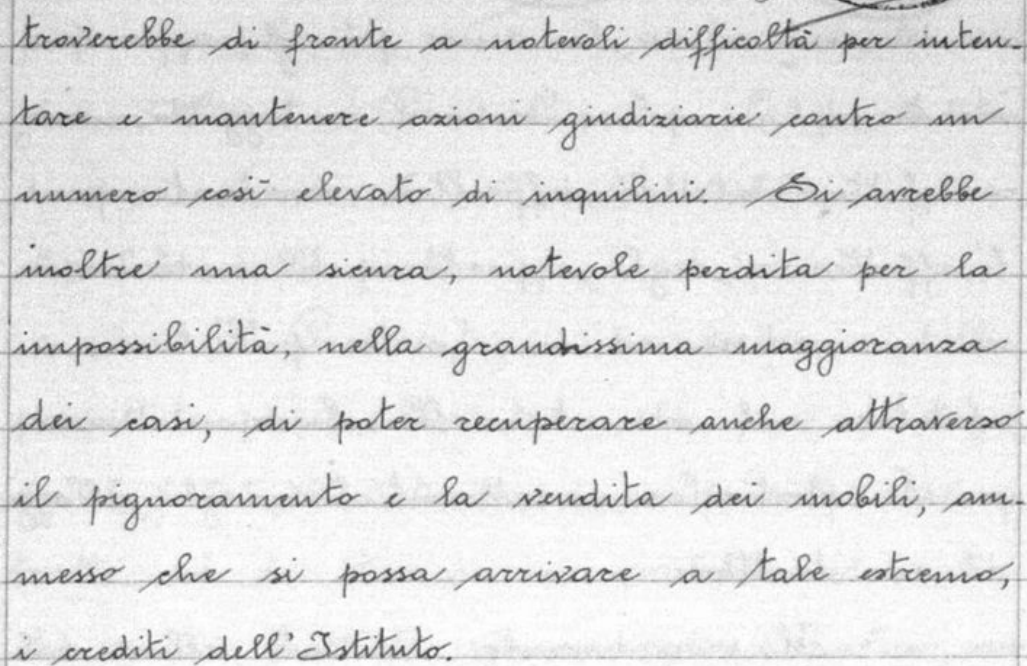 troverebbe di fronte a notevoli difficoltà per inten-
tare e mantenere azioni giudiziarie contro un
numero così elevato di inquilini. Si avrebbe
inoltre una sicura, notevole perdita per la
impossibilità, nella grandissima maggioranza
dei casi, di poter recuperare anche attraverso
il pignoramento e la vendita dei mobili, am-
messo che si possa arrivare a tale estremo,
i crediti dell'Istituto.